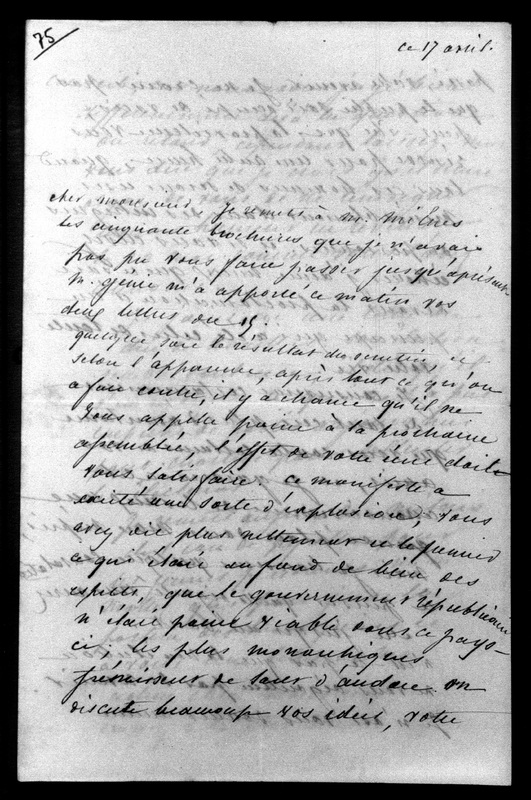 75
ce 17 avril.
cher monsieur, je remets à M. Milnes
les cinquante brochures que je n'avais
pas pu vous faire passer jusqu'à présent
M. génie m'a apporté ce matin vos
deux lettres du 15.
quelque soit le résultat du scrutin, et
selon l'apparence, après tout ce qu'on
a fait contre, il y a chance qu'il ne
vous appelle point à la prochaine
assemblée, l'effet de votre écrit doit
vous satisfaire. ce manifeste a
excité une sorte d'explosion, vous
avez dit plus nettement et le premier
ce qui était au fond de bien des
esprits, que le gouvernement républicain
n'était point viable dans ce pays-
ci, les plus monarchiques
frémissent de tant d'audace on
discute beaucoup vos idées, votre